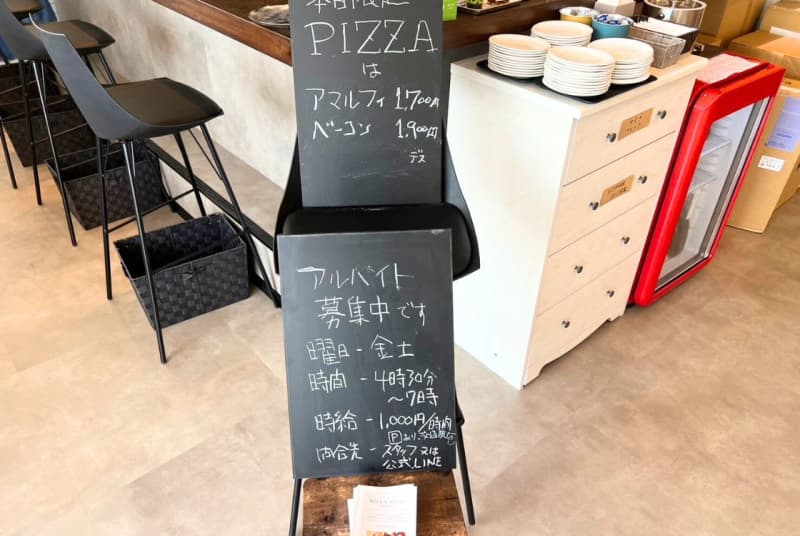 本日限定
PIZZA
は
アマルフィ 1,700円
ベーコン 1,900円
デス
アルバイト
募集中です
曜日-金土
時間-4時30分
~7時
時給-1,000円/時間
Pあり
問合先-スタッフ又は
公式LINE